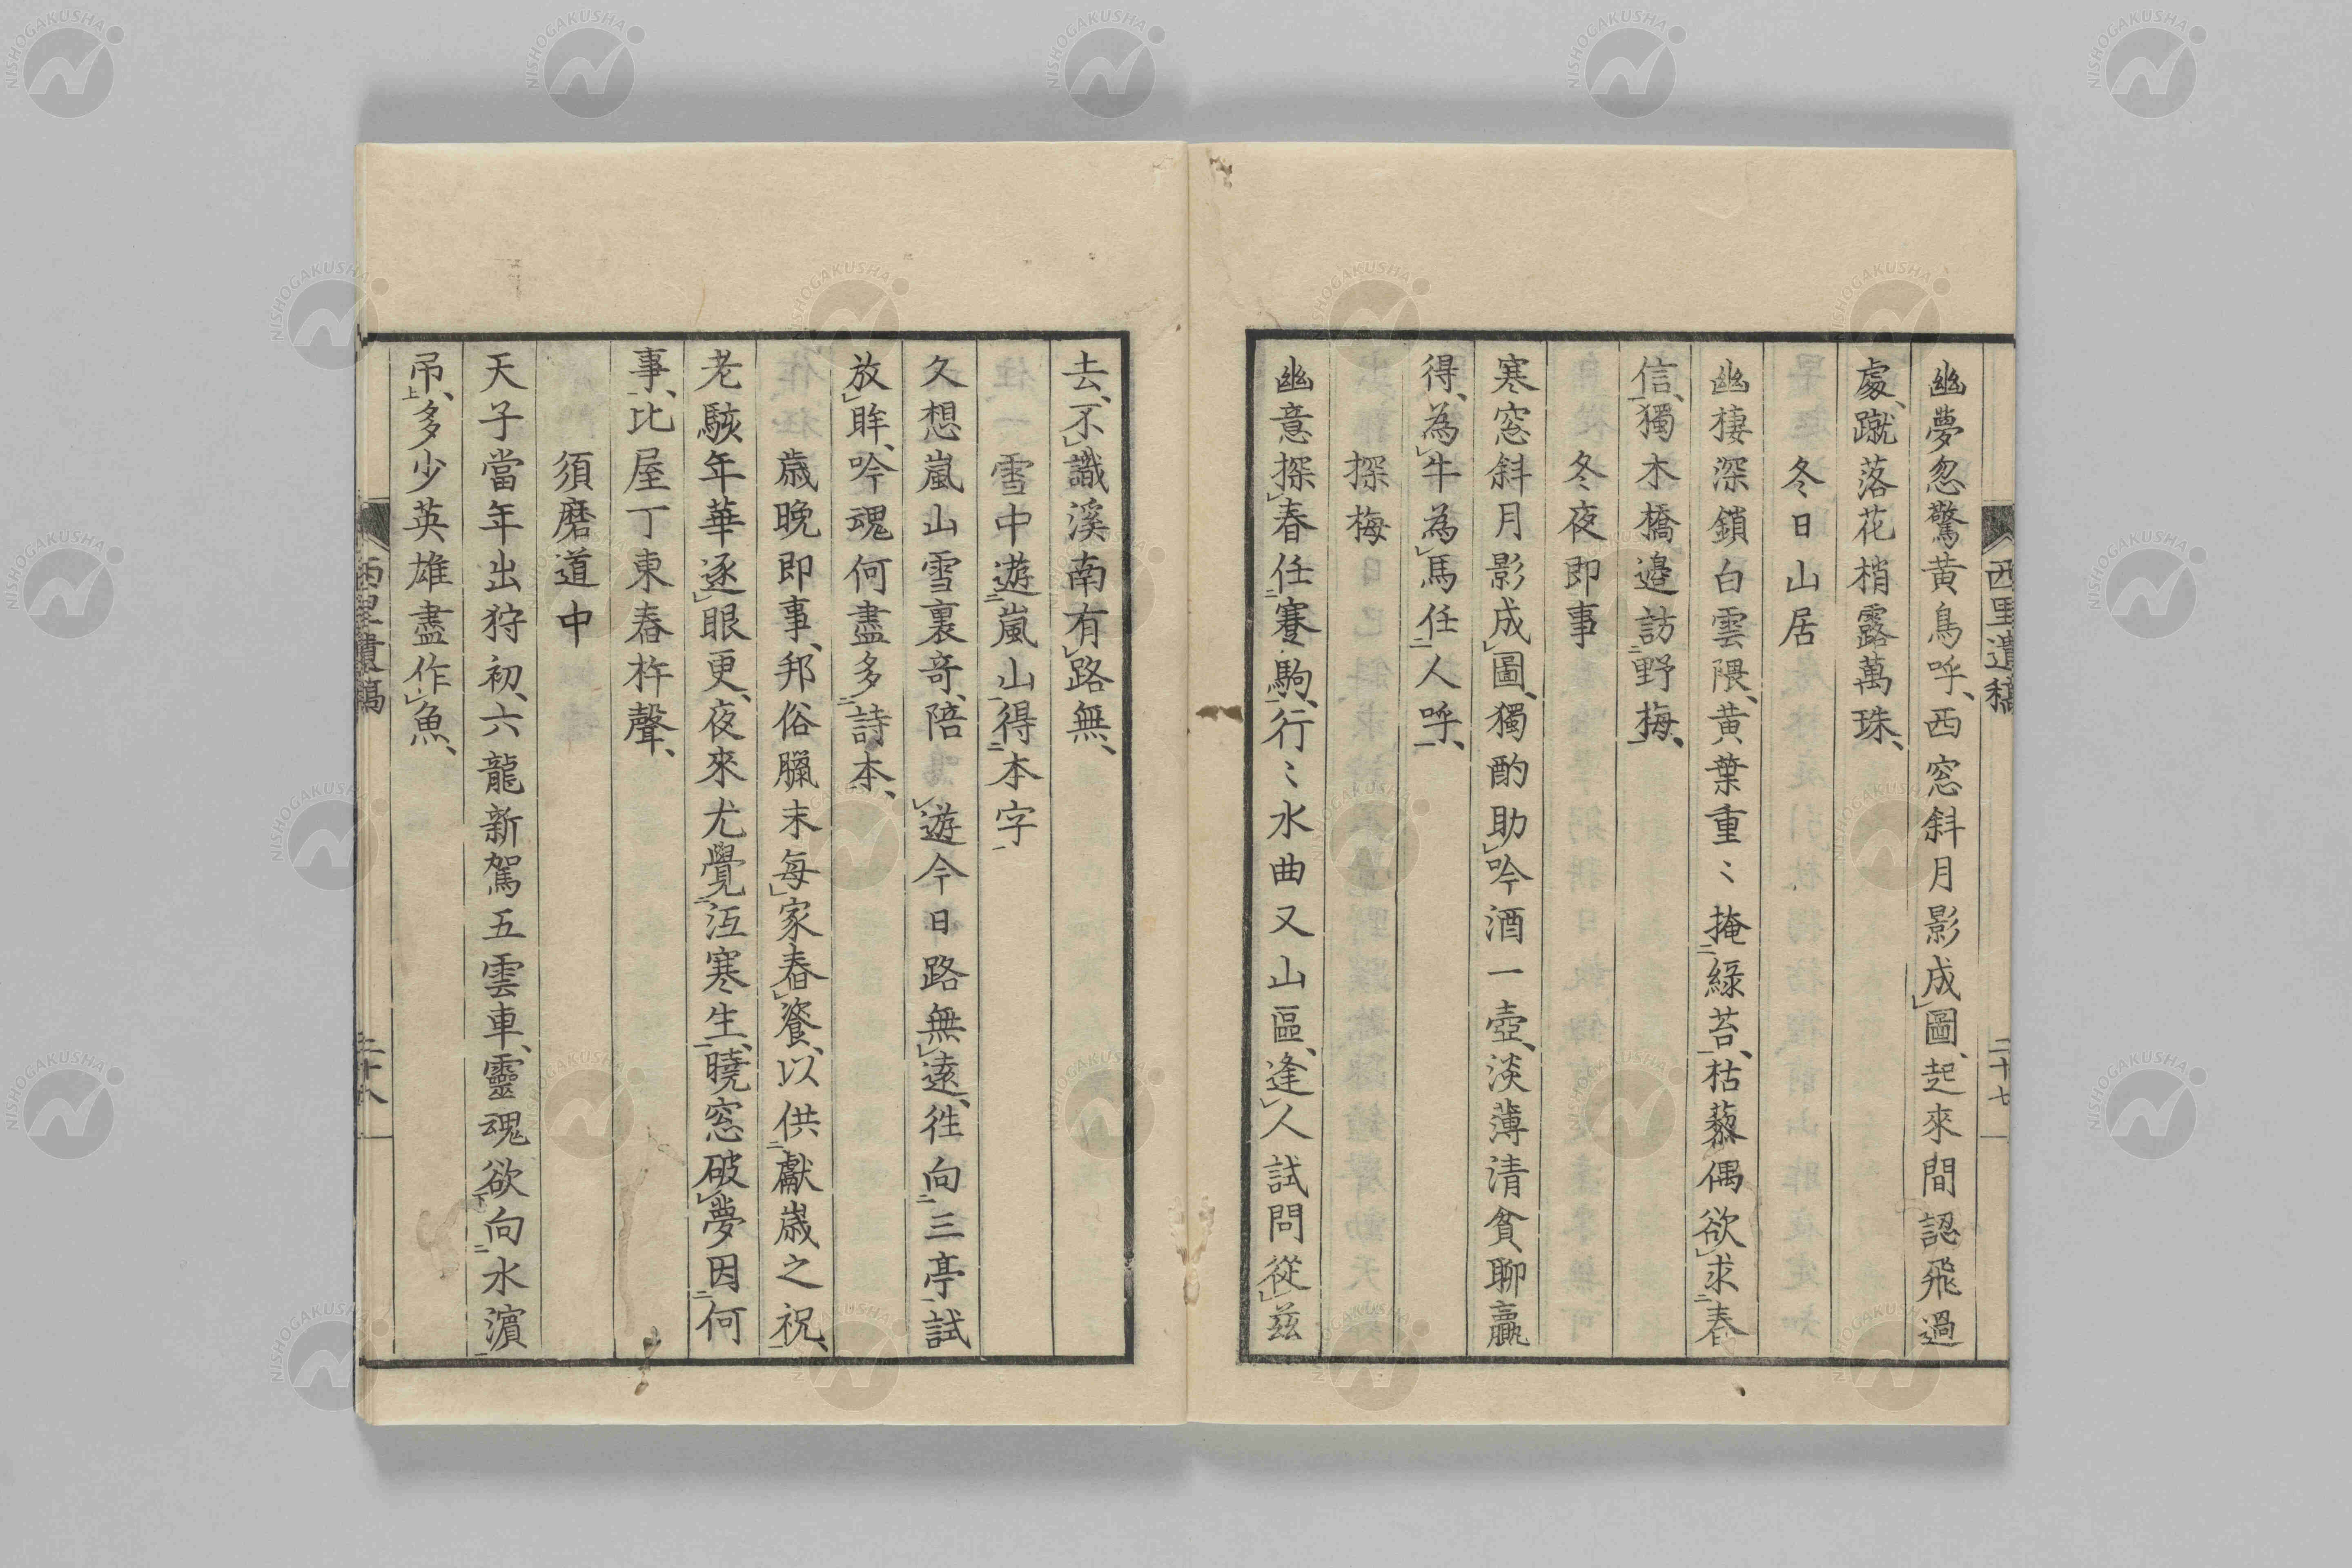 西里遺稿
二十七
幽夢忽驚黄鳥呼、西窓斜月影成㆑圖、起來間認飛過
處、蹴落花梢露萬珠、
冬日山居
幽棲深鎖白雲隈、黄葉重〻掩㆓綠苔㆒、枯藜偶欲㆑求㆓春
信㆒、獨木橋邉訪㆓野梅㆒、
冬夜即事
寒窓斜月影成㆑圖、獨酌助㆑吟酒一壺、淡薄清貧聊贏
得、為㆑牛為㆑馬任㆓人呼㆒、
探梅
幽意探㆑春任㆓蹇駒㆒、行〻水曲又山區、逢㆑人試問從㆑茲
去、不㆑識溪南有㆑路無、
雪中遊㆓嵐山㆒得㆓本字㆒
久想嵐山雪裏奇、陪㆑遊今日路無㆑遠、徃向㆓三亭㆒試
放㆑眸、吟魂何盡多㆓詩本㆒、
歳晩即事、邦俗臘末每㆑家舂㆑餈、以供㆓獻歳之祝㆒、
老駭年華逐㆑眼更、夜來尤覺㆓沍寒生㆒、曉窓破㆑夢因㆓何
事㆒、比屋丁東舂杵聲、
須磨道中
天子當年出狩初、六龍新駕五雲車、靈魂欲㆘向㆓水濵㆒
吊㆖、多少英雄盡作㆑魚、
西里遺稿
二十八
NISHOGAKUSHA